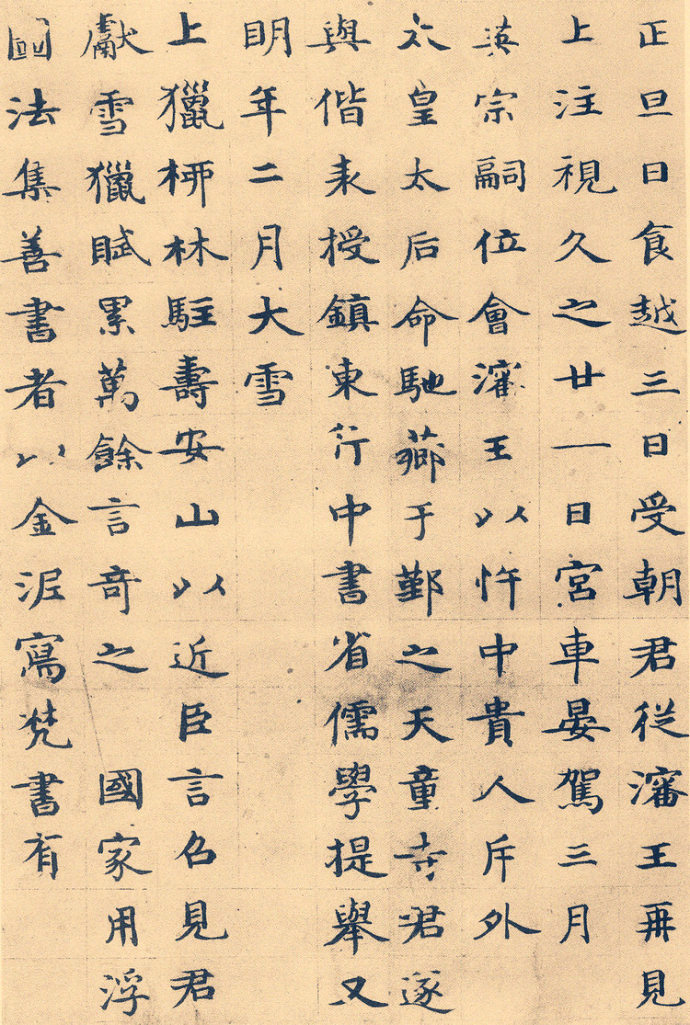 正旦日食越三日受朝君從瀋王再見
上注視久之廿一日宮車晏駕三月
英宗嗣位會瀋王以忤中貴人斥外
太皇太后命馳薌于鄞之天童寺君遂
與偕来授鎮東行中書省儒學提舉又
明年二月大雪
上獵桺林駐壽安山以近臣言召見君
獻雪獵賦累萬餘言竒之 國家用浮
圖法集善書者以金泥寫梵書有